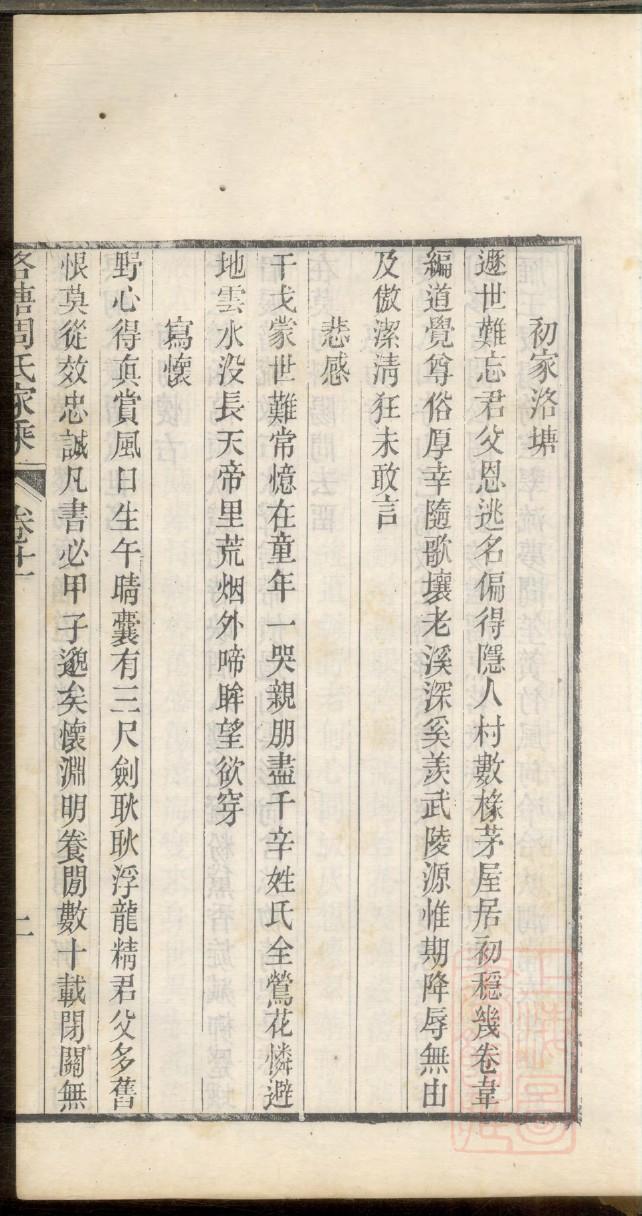 初家洛塘
遯世難忘君父恩逃名偏得隱人村數椽茅屋居初穩幾卷韋
編道覺尊俗厚幸隨歌壤老溪深奚羨武陵源惟期降辱無由
及傲潔清狂未敢言
悲感
干戈蒙世難常憶在童年一哭親朋盡千辛姓氏全鶯花憐避
地雲水没長天帝里荒烟外啼眸望欲穿
寫懷
野心得真賞風日生午晴囊有三尺劍耿耿浮龍精君父多舊
恨莫從效忠誠凡書必甲子邈矣懷淵明養閒數十載閉關無
洛塘周氏家乘
卷十一
二